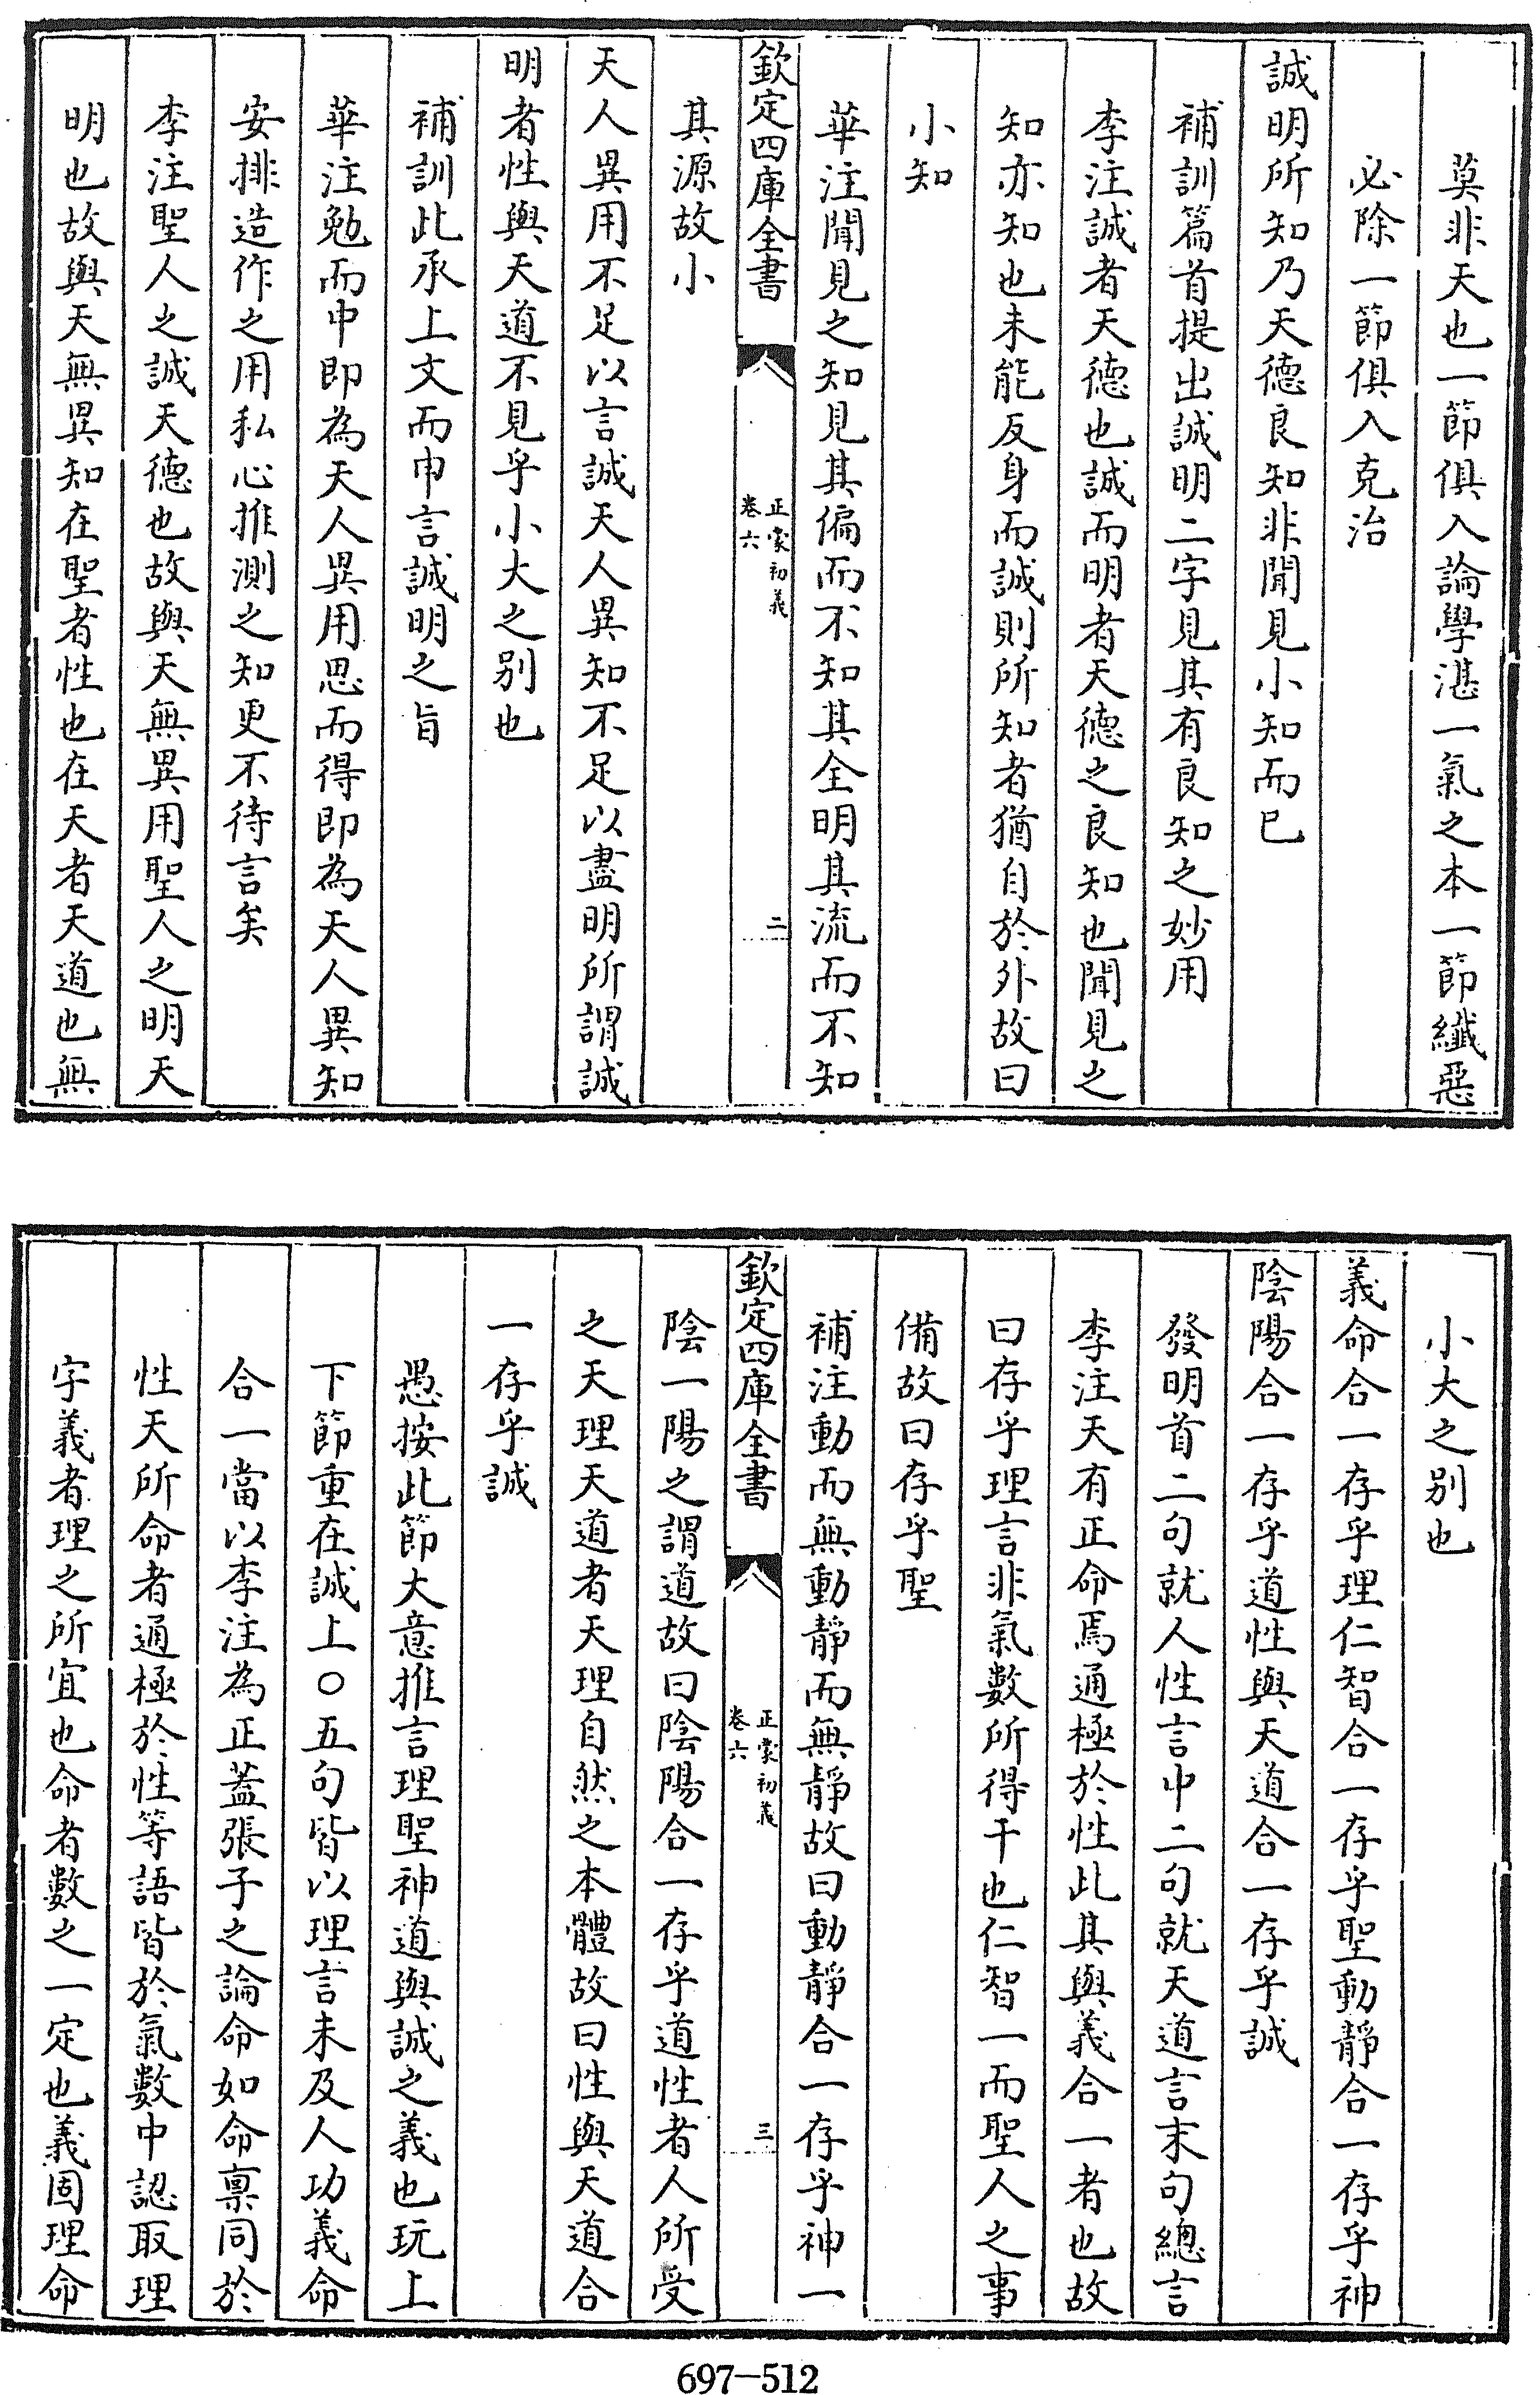 莫非天也一節俱入論學湛一氣之本一節纖惡
必除一節俱入克治
誠明所知乃天德良知非聞見小知而已
補訓篇首提出誠明二字見其有良知之妙用
李注誠者天德也誠而明者天德之良知也聞見之
知亦知也未能反身而誠則所知者猶自於外故曰
小知
華注聞見之知見其偏而不知其全明其流而不知
欽定四庫全書
正蒙初義
卷六
二
其源故小
天人異用不足以言誠天人異知不足以盡明所謂誠
明者性與天道不見乎小大之别也
補訓此承上文而申言誠明之旨
華注勉而中即為天人異用思而得即為天人異知
安排造作之用私心推測之知更不待言矣
李注聖人之誠天德也故與天無異用聖人之明天
明也故與天無異知在聖者性也在天者天道也無
小大之别也
義命合一存乎理仁智合一存乎聖動靜合一存乎神
陰陽合一存乎道性與天道合一存乎誠
發明首二句就人性言中二句就天道言末句總言
李注天有正命焉通極於性此其與義合一者也故
曰存乎理言非氣數所得干也仁智一而聖人之事
備故曰存乎聖
補注動而無動靜而無靜故曰動靜合一存乎神一
欽定四庫全書
正蒙初義
卷六
三
陰一陽之謂道故曰陰陽合一存乎道性者人所受
之天理天道者天理自然之本體故曰性與天道合
一存乎誠
愚按此節大意推言理聖神道與誠之義也玩上
下節重在誠上○五句皆以理言未及人功義命
合一當以李注為正蓋張子之論命如命稟同於
性天所命者通極於性等語皆於氣數中認取理
字義者理之所宜也命者數之一定也義固理命
697-512